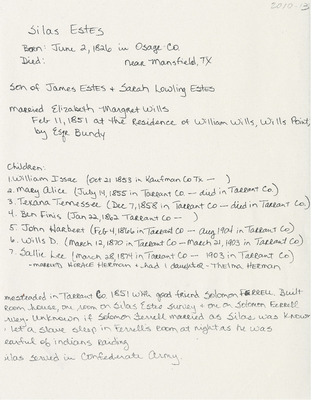 2010-13
Silas Estes
Born: June 2, 1826 in Osage Co.
Died: near Mansfield, TX
son of James Estes & Sarah Lowling Estes
married Elizabeth Margret Wills
Feb 11, 1851 at the residence of William Wills, Wills Point,
by Esqr Bundy
Children:
1. William Issac (Oct 21 1853 in Kaufman Co Tx — )
2. Mary Alice (July 14, 1855 in Tarrant Co. — died in Tarrant Co)
3. Texana Tennessee (Dec 7, 1858 in Tarrant Co — died in Tarrant Co.)
4. Ben Finis (Jan 22, 1862 Tarrant Co — )
5. John Harbert (Feb 4, 1866 in Tarrant Co — Aug 1904 in Tarrant Co)
6. Wills D. (March 12, 1870 in Tarrant Co — March 21, 1903 in Tarrant Co)
7. Sallie Lee (March 28, 1874 in Tarrant Co — 1903 in Tarrant Co.)
- married Horace Herman & had 1 daughter - Thelma Herman
mesteaded in Tarrant Co. 1851 with good friend Solomon Ferrell. Built
room house, one room on Silas Estes survey & one on Solomon Ferrell
rvey. Unknown if Solomon Ferrell married as Silas was known
let a slave sleep in Ferrell's room at night as he was
earful of indians raiding
ilas served in Confederate Army.